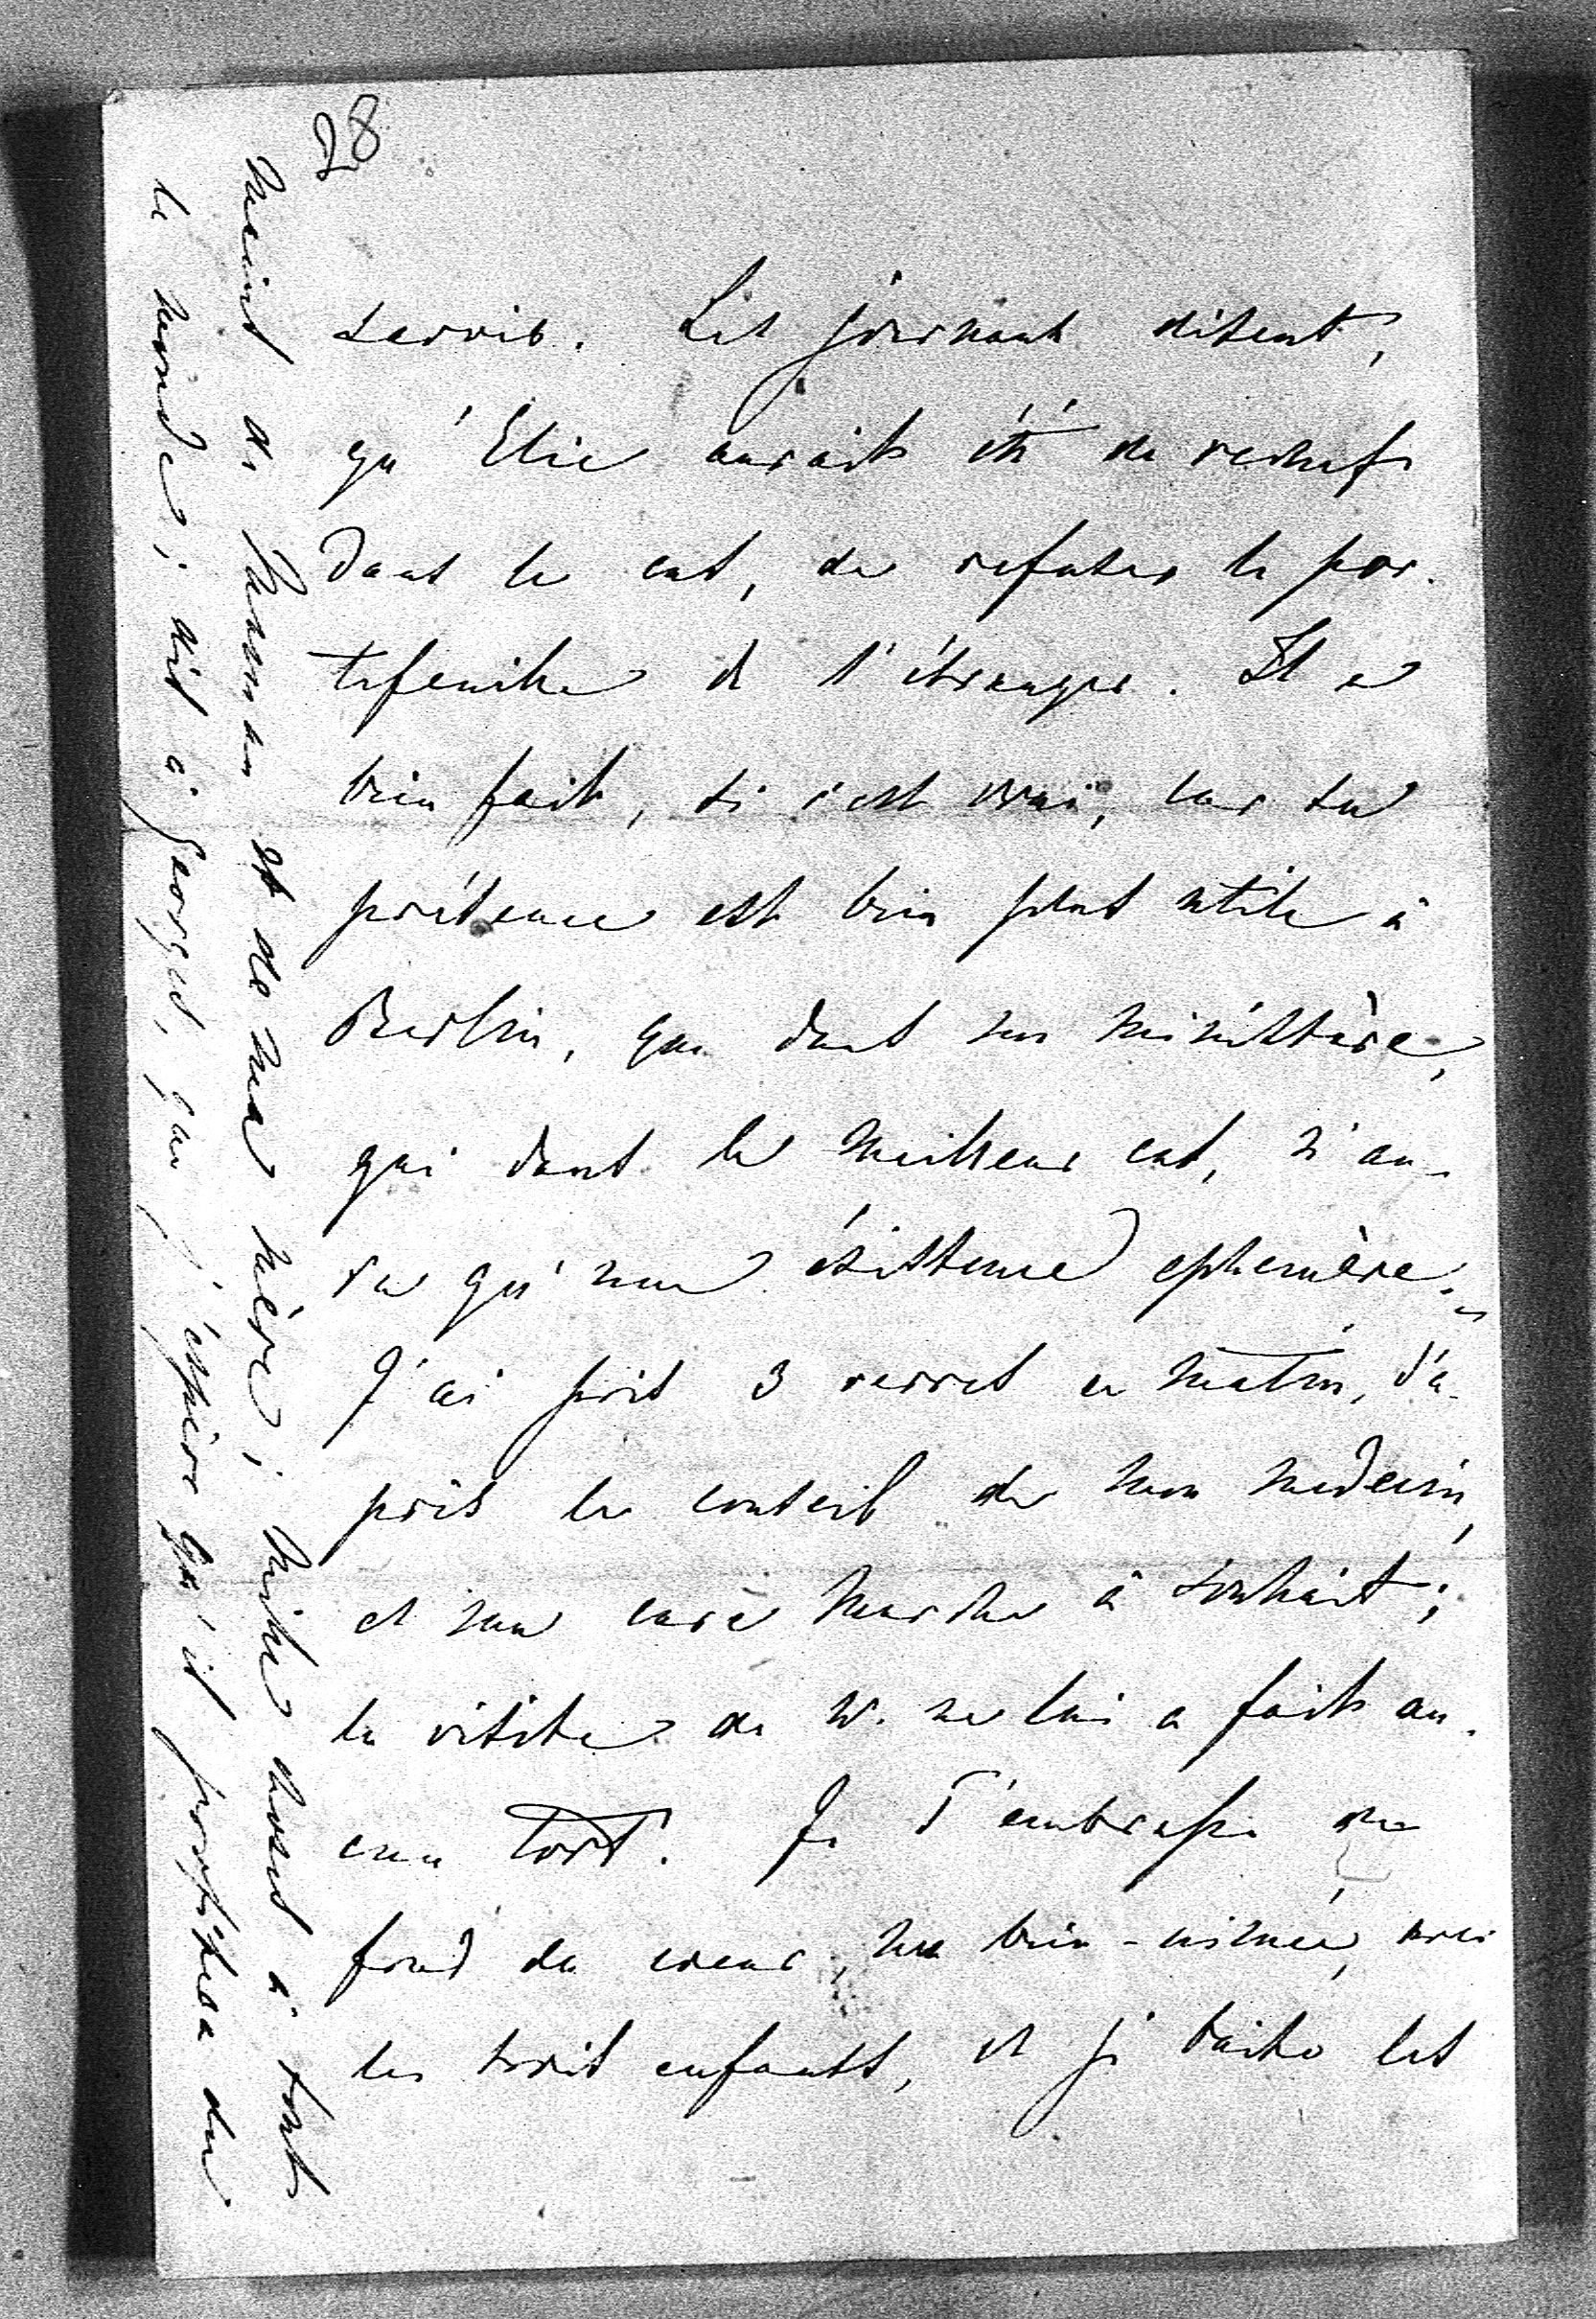 28
servir. Les journaux disent,
qu'Elie aurait été de rechef
dans le cas, de refuser le por-
tefeuille de l'étranger. Il a
bien fait, si c'est vrai, car sa
présence est bien plus utile à
Berlin, que dans un ministère,
qui dans le meilleur cas, n'au-
ra qu'une éxistence ephemère.
J'ai pris 3 verres ce matin, d'a-
près le conseil de mon medecin,
et ma cure marche à souhait;
la visite de W. ne lui a fait au-
cun tort. Je T'embrasse du
fond du coeur, ma bien-aimée, avec
les trois enfants, et je baise les
mains de Maman et de ma mère; mille choses à tout
le monde; dis à Georges, que j'éspère qu'il profitera du